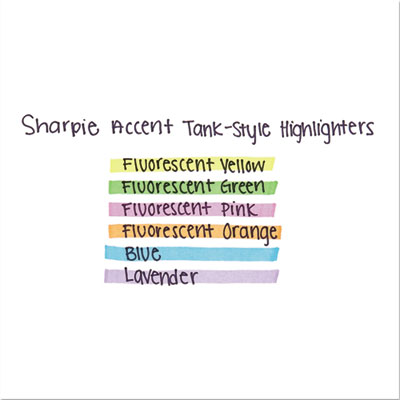 Sharpie Accent Tank-Style Highlighters
Fluorescent Yellow
Fluorescent Green
Fluorescent Pink
Fluorescent Orange
Blue
Lavender